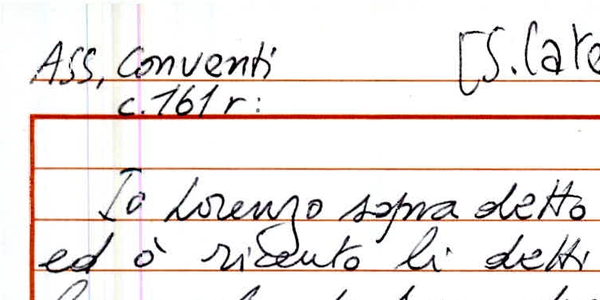 Ass, Conventi [S. Cate
c. 161 r:
Io Lorenzo sopra detto
ed ò riceuto li detti